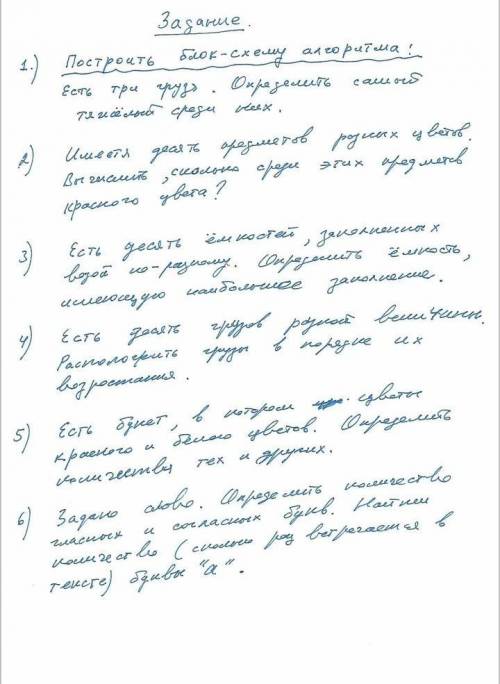 Задание.
1.) Построить блок-схему алгоритма!
Есть три груза. Определить самый
тяжёлый среди них.
2) Имеется десять предметов разных цветов.
Вычислить, сколько среди этих предметов
красного цвета?
3) Есть десять ёмкостей, заполненных
водой по-разному. Определить ёмкость,
имеющую наибольшее заполнение.
4) Есть десять грузов разной величины.
Расположить грузы в порядке их
возростания.
5) Есть букет, в котором цветы
красного и белого цветов. Определить
количества тех и других.
6) Задано слово. Определить количество
гласных и согласных букв. Найти
количество (сколько раз встречается в
тексте) буквы "а".